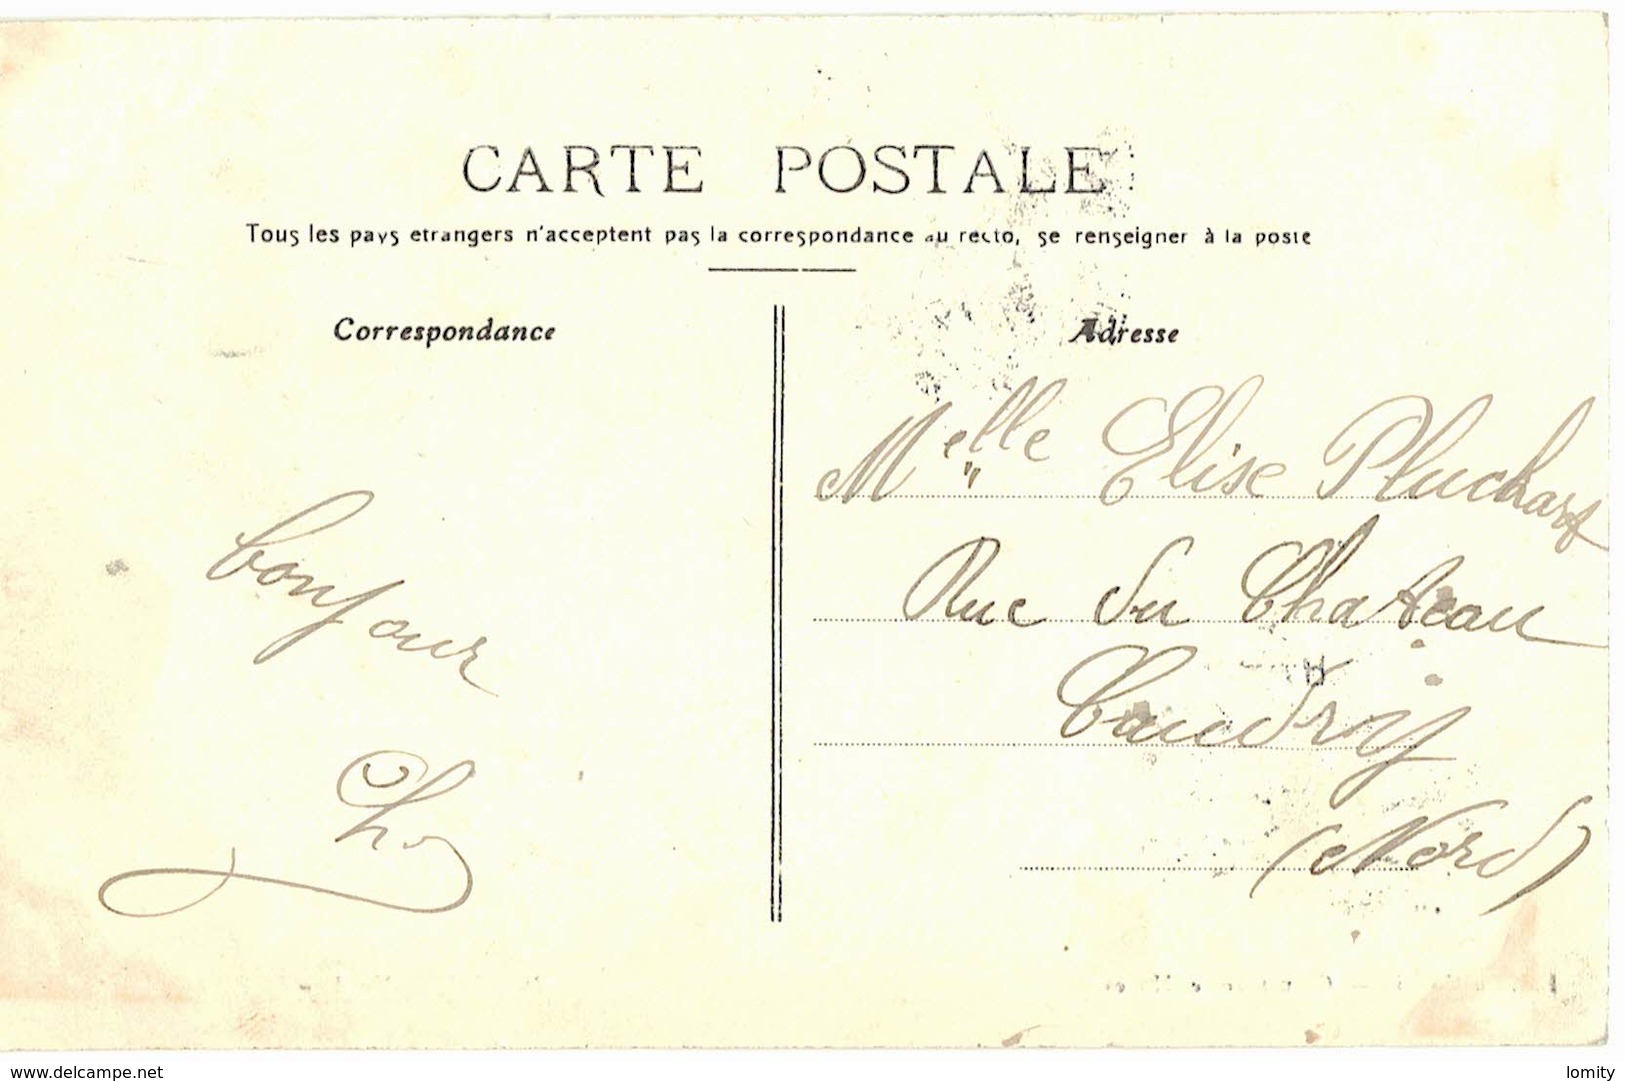 CARTE POSTALE
Tous les pays etrangers n'acceptent pas la correspondance au recto, se renseigner à la poste
Correspondance
Adresse
bonjour
Ch
Melle Elise Pluchart
Rue du Chateau
Caudry
(Nord)
www.delcampe.net
lomity